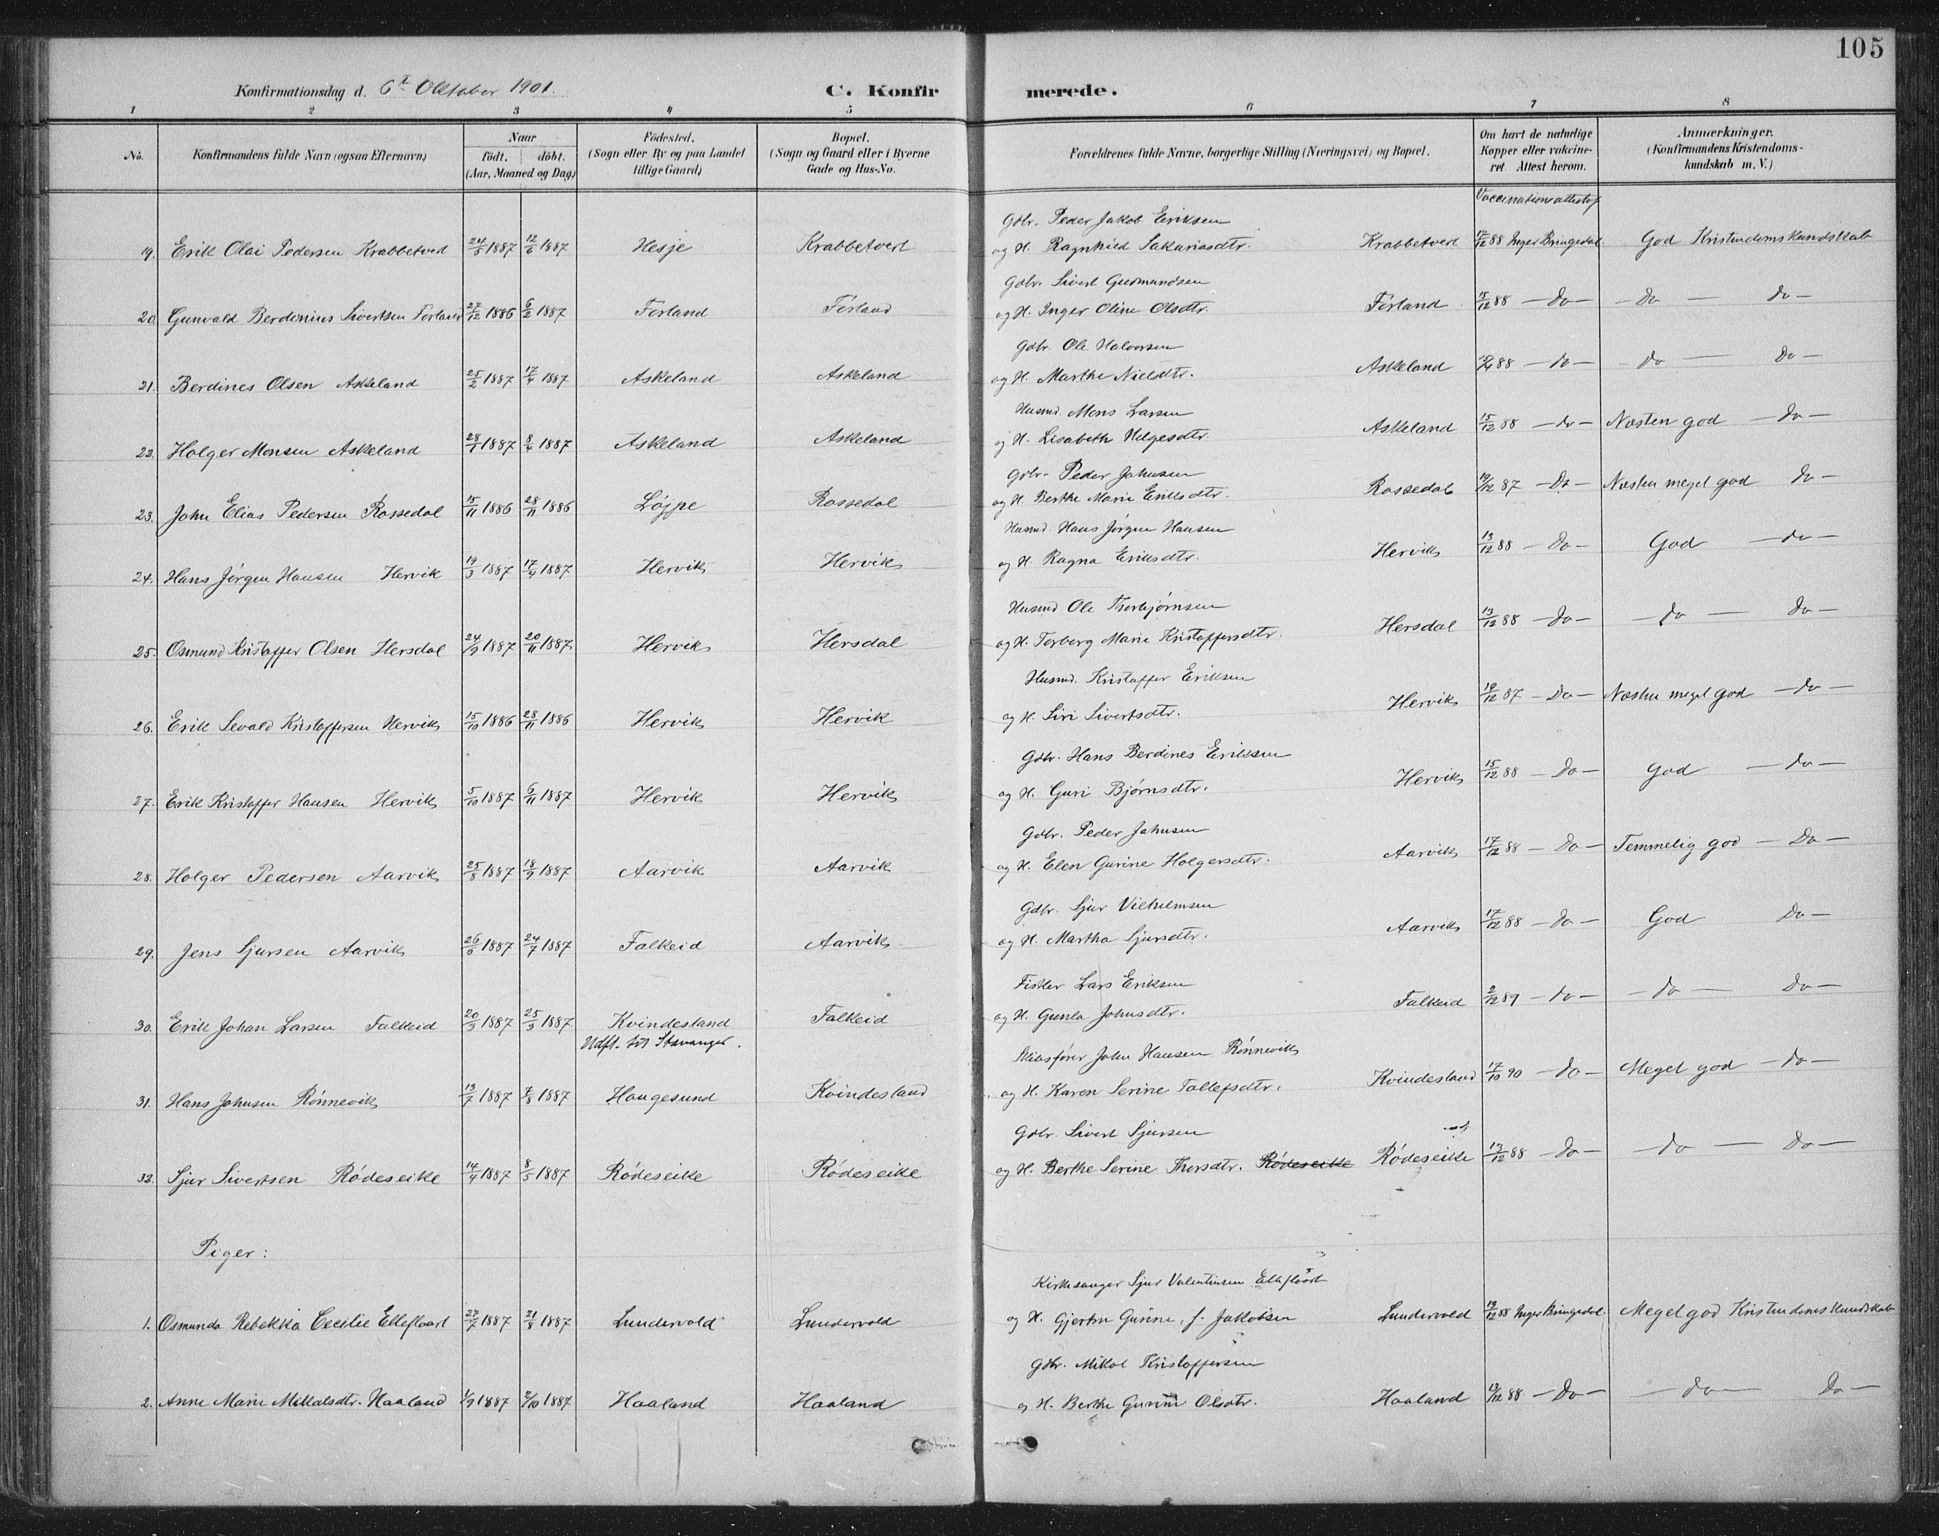 105
Konfirmationsdag d. 6te Oktober 1901.
C. Konfirmerede.
1 2 3 4 5 6 7 8
No.
Konfirmandens fulde Navn (ogsaa Efternavn)
Naar
födt. döbt.
(Aar, Maaned og Dag)
Födested.
(Sogn eller By og paa Landet
tillige Gaard)
Bopæl.
(Sogn og Gaard eller i Byerne
Gade og Hus-No.
Forældrenes fulde Navne, borgerlige Stilling (Næringsvei) og Bopæl.
Om havt de naturlige
Kopper eller vakcine-
ret Attest herom.
Anmærkninger.
(Konfirmandens Kristendoms-
kundskab m. V.)
Vaccinationsattest af
Gdbr. Peder Jakob Eriksen
19. Erik Olai Pedersen Krabbetvert 24/5 1887 12/6 1887 Hesje Krabbetvert og H. Ragnhild Sakariasdtr. Krabbetvert 17/12 88 Inger Bringedal God Kristendomskundskab
Gdbr. Sivert Gudmundsen
20. Gunvald Berdinius Sivertsen Förland 27/12 1886 6/2 1887 Förland Förland og H. Inger Oline Olsdtr. Förland 15/12 88 — Do — — Do — Do —
Gdbr. Ole Halvorsen
21. Berdines Olsen Askeland 25/2 1887 17/4 1887 Askeland Askeland og H. Marthe Nielsdtr. Askeland 88 — do — do — Do —
Husmd. Mons Larsen
22. Holger Monsen Askeland 28/1 1887 8/4 1887 Askeland Askeland og H. Lisabeth Helgesdtr. Askeland 15/12 88 — do — Næsten god — Do —
Gdbr. Peder Johnsen
23. John Elias Pedersen Rossedal 15/11 1886 28/11 1886 Löjpe Rossedal og H. Berthe Marie Eriksdtr. Rossedal 19/12 87 — Do — Næsten meget god Do —
Husmd. Hans Jörgen Hansen
24. Hans Jörgen Hansen Hervik 19/3 1887 17/4 1887 Hervik Hervik og H. Ragna Eriksdtr. Hervik 13/12 88 — Do — God — do —
Husmd Ole Thorbjørnsen
25. Osmund Kristoffer Olsen Hersdal 24/9 1887 20/11 1887 Hervik Hersdal og H. Torberg Marie Kristoffersdtr. Hersdal 13/12 88 — Do — — do — Do —
Husmd. Kristoffer Eriksen
26. Erik Sevald Kristoffersen Hervik 15/10 1886 28/11 1886 Hervik Hervik og H. Siri Sivertsdtr. Hervik 19/12 87 — Do — Næsten meget god — do —
Gdbr. Hans Berdines Eriksen
27. Erik Kristoffer Hansen Hervik 5/10 1887 6/11 1887 Hervik Hervik og H. Guri Bjørnsdtr. Hervik 15/12 88 — Do — God — do —
Gdbr. Peder Johnsen
28. Holger Pedersen Aarvik 25/8 1887 18/9 1887 Aarvik Aarvik og H. Elen Gurine Holgersdtr. Aarvik 17/12 88 — Do — Temmelig god — Do —
Gdbr. Sjur Vilhelmsen
29. Jens Sjursen Aarvik 26/6 1887 24/7 1887 Falkeid Aarvik og H. Martha Sjursdtr. Aarvik 17/12 88 — Do — God Do —
Fisker Lars Eriksen
30. Erik Johan Larsen Falkeid 20/9 1887 25/9 1887 Kvindesland Falkeid og H. Gunla Johnsdtr. Falkeid 2/12 89 — do — — do — Do —
Udft. til Stavanger.
Skibsfører John Hansen Rønnevik
31. Hans Johnsen Rönnevik 13/7 1887 7/8 1887 Haugesund Kvindesland og H. Karen Serine Tollefsdtr. Kvindesland 17/10 90 — Do — Meget god — Do —
Gdbr. Sivert Sjursen
32. Sjur Sivertsen Rödeseike 14/4 1887 8/5 1887 Rödeseike Rödeseike og H. Berthe Serine Thorsdtr. Rödeseike Rödeseike 13/12 88 — Do — — do — Do —
Piger:
Kirkesanger Sjur Valentinsen Elleflaadt
1. Osmunda Rebekka Cecilie Elleflaadt 27/7 1887 21/8 1887 Lundervold Lundervold og H. Gjertru Gurine, f. Jakobsen Lundervold 13/12 88 Inger Bringedal. Meget god Kristendomskundskab
Gdbr. Mikal Kristoffersen
2. Anne Marie Mikalsdtr. Haaland 1/9 1887 2/10 1887 Haaland Haaland og H. Berthe Gurine Olsdtr. Haaland 13/12 88 — Do — — Do — Do —